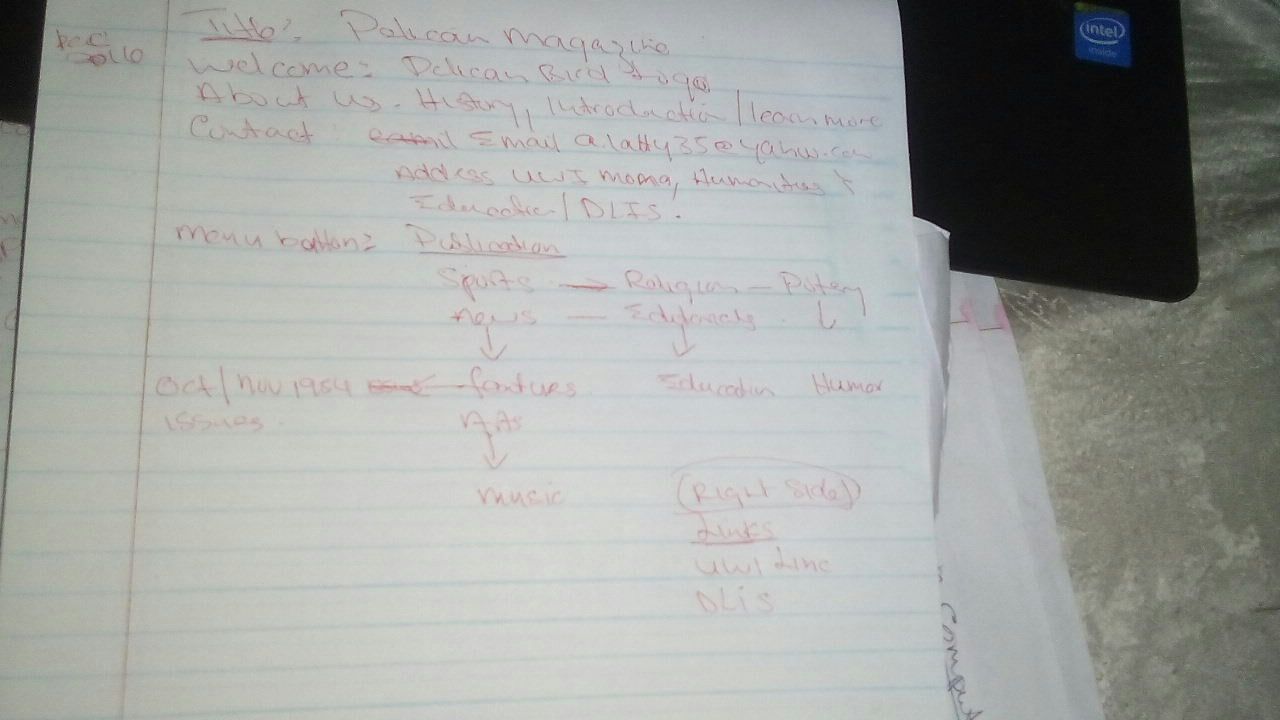 Title: Pelican magazine
Dec 2016
Welcome: Pelican Bird Logo
About us. History, Introduction / learn more
Contact Email a.latty35@yahoo.com
Address UWI mona, Humanities &
Education / DLIS.
menu button: Publication
Sports → Religion — Poetry
news — Editorials
Oct / Nov 1954 features Education Humor
issues.
music (Right Side)
Links
UWI Linc
DLiS
intel
inside